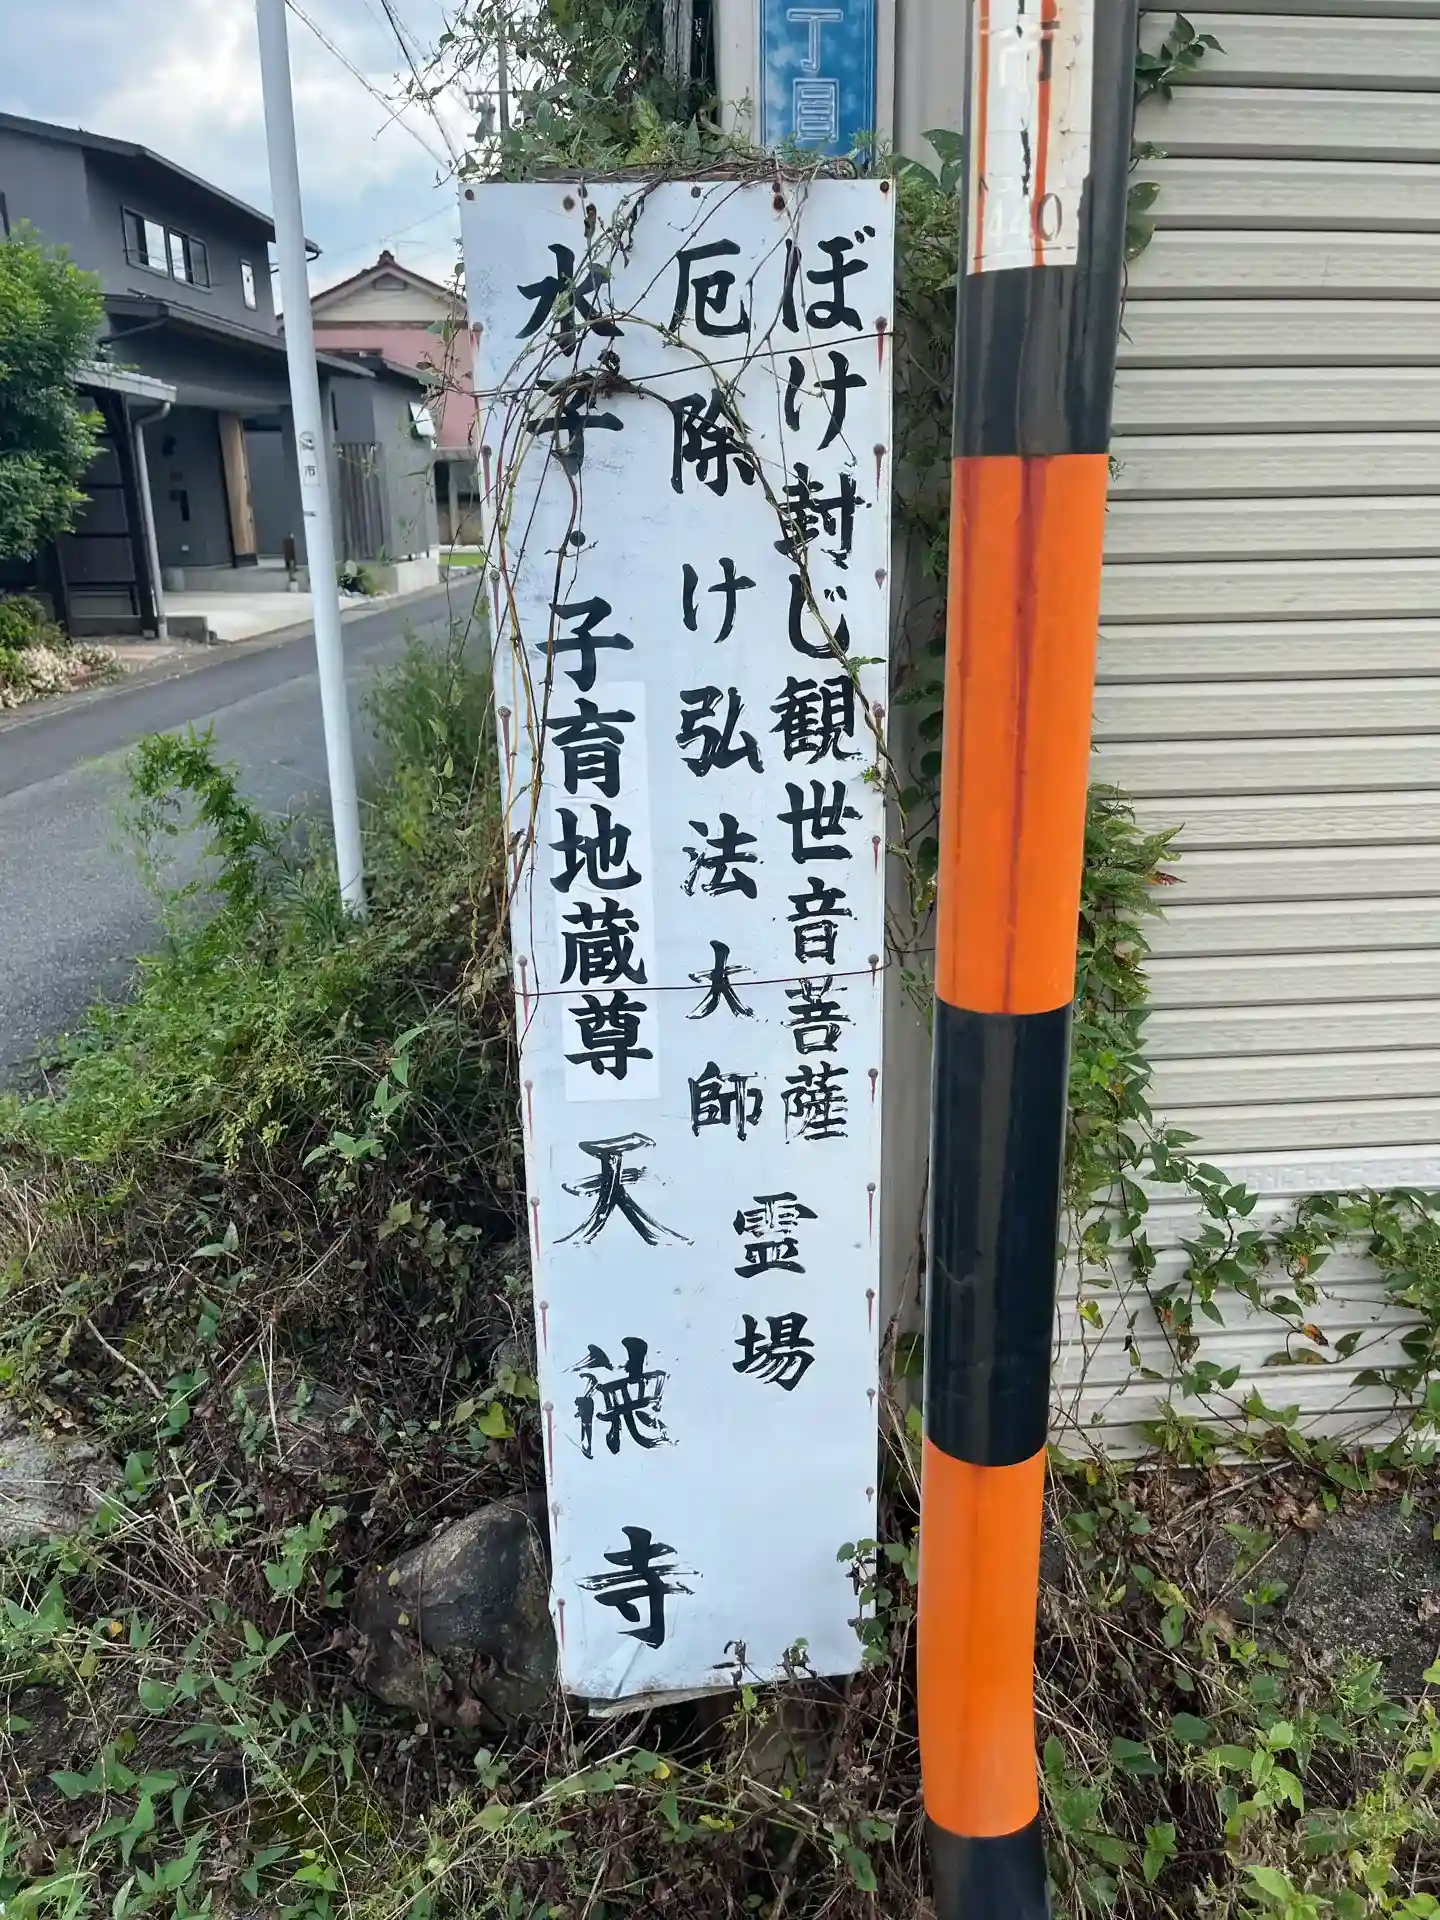 丁目
ぼけ封じ観世音菩薩
厄除け弘法大師
霊場
水子・子育地蔵尊
天徳寺
440
市